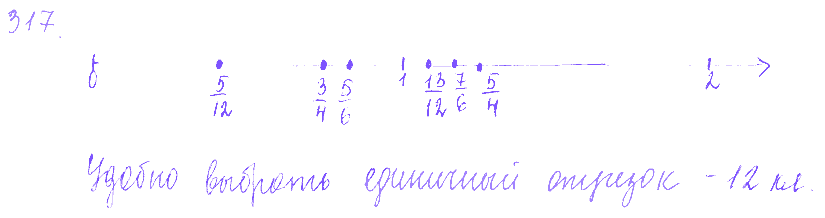 317.
0 5/12 3/4 5/6 1 13/12 7/6 5/4 2
Удобно выбрать единичный отрезок - 12 кл.